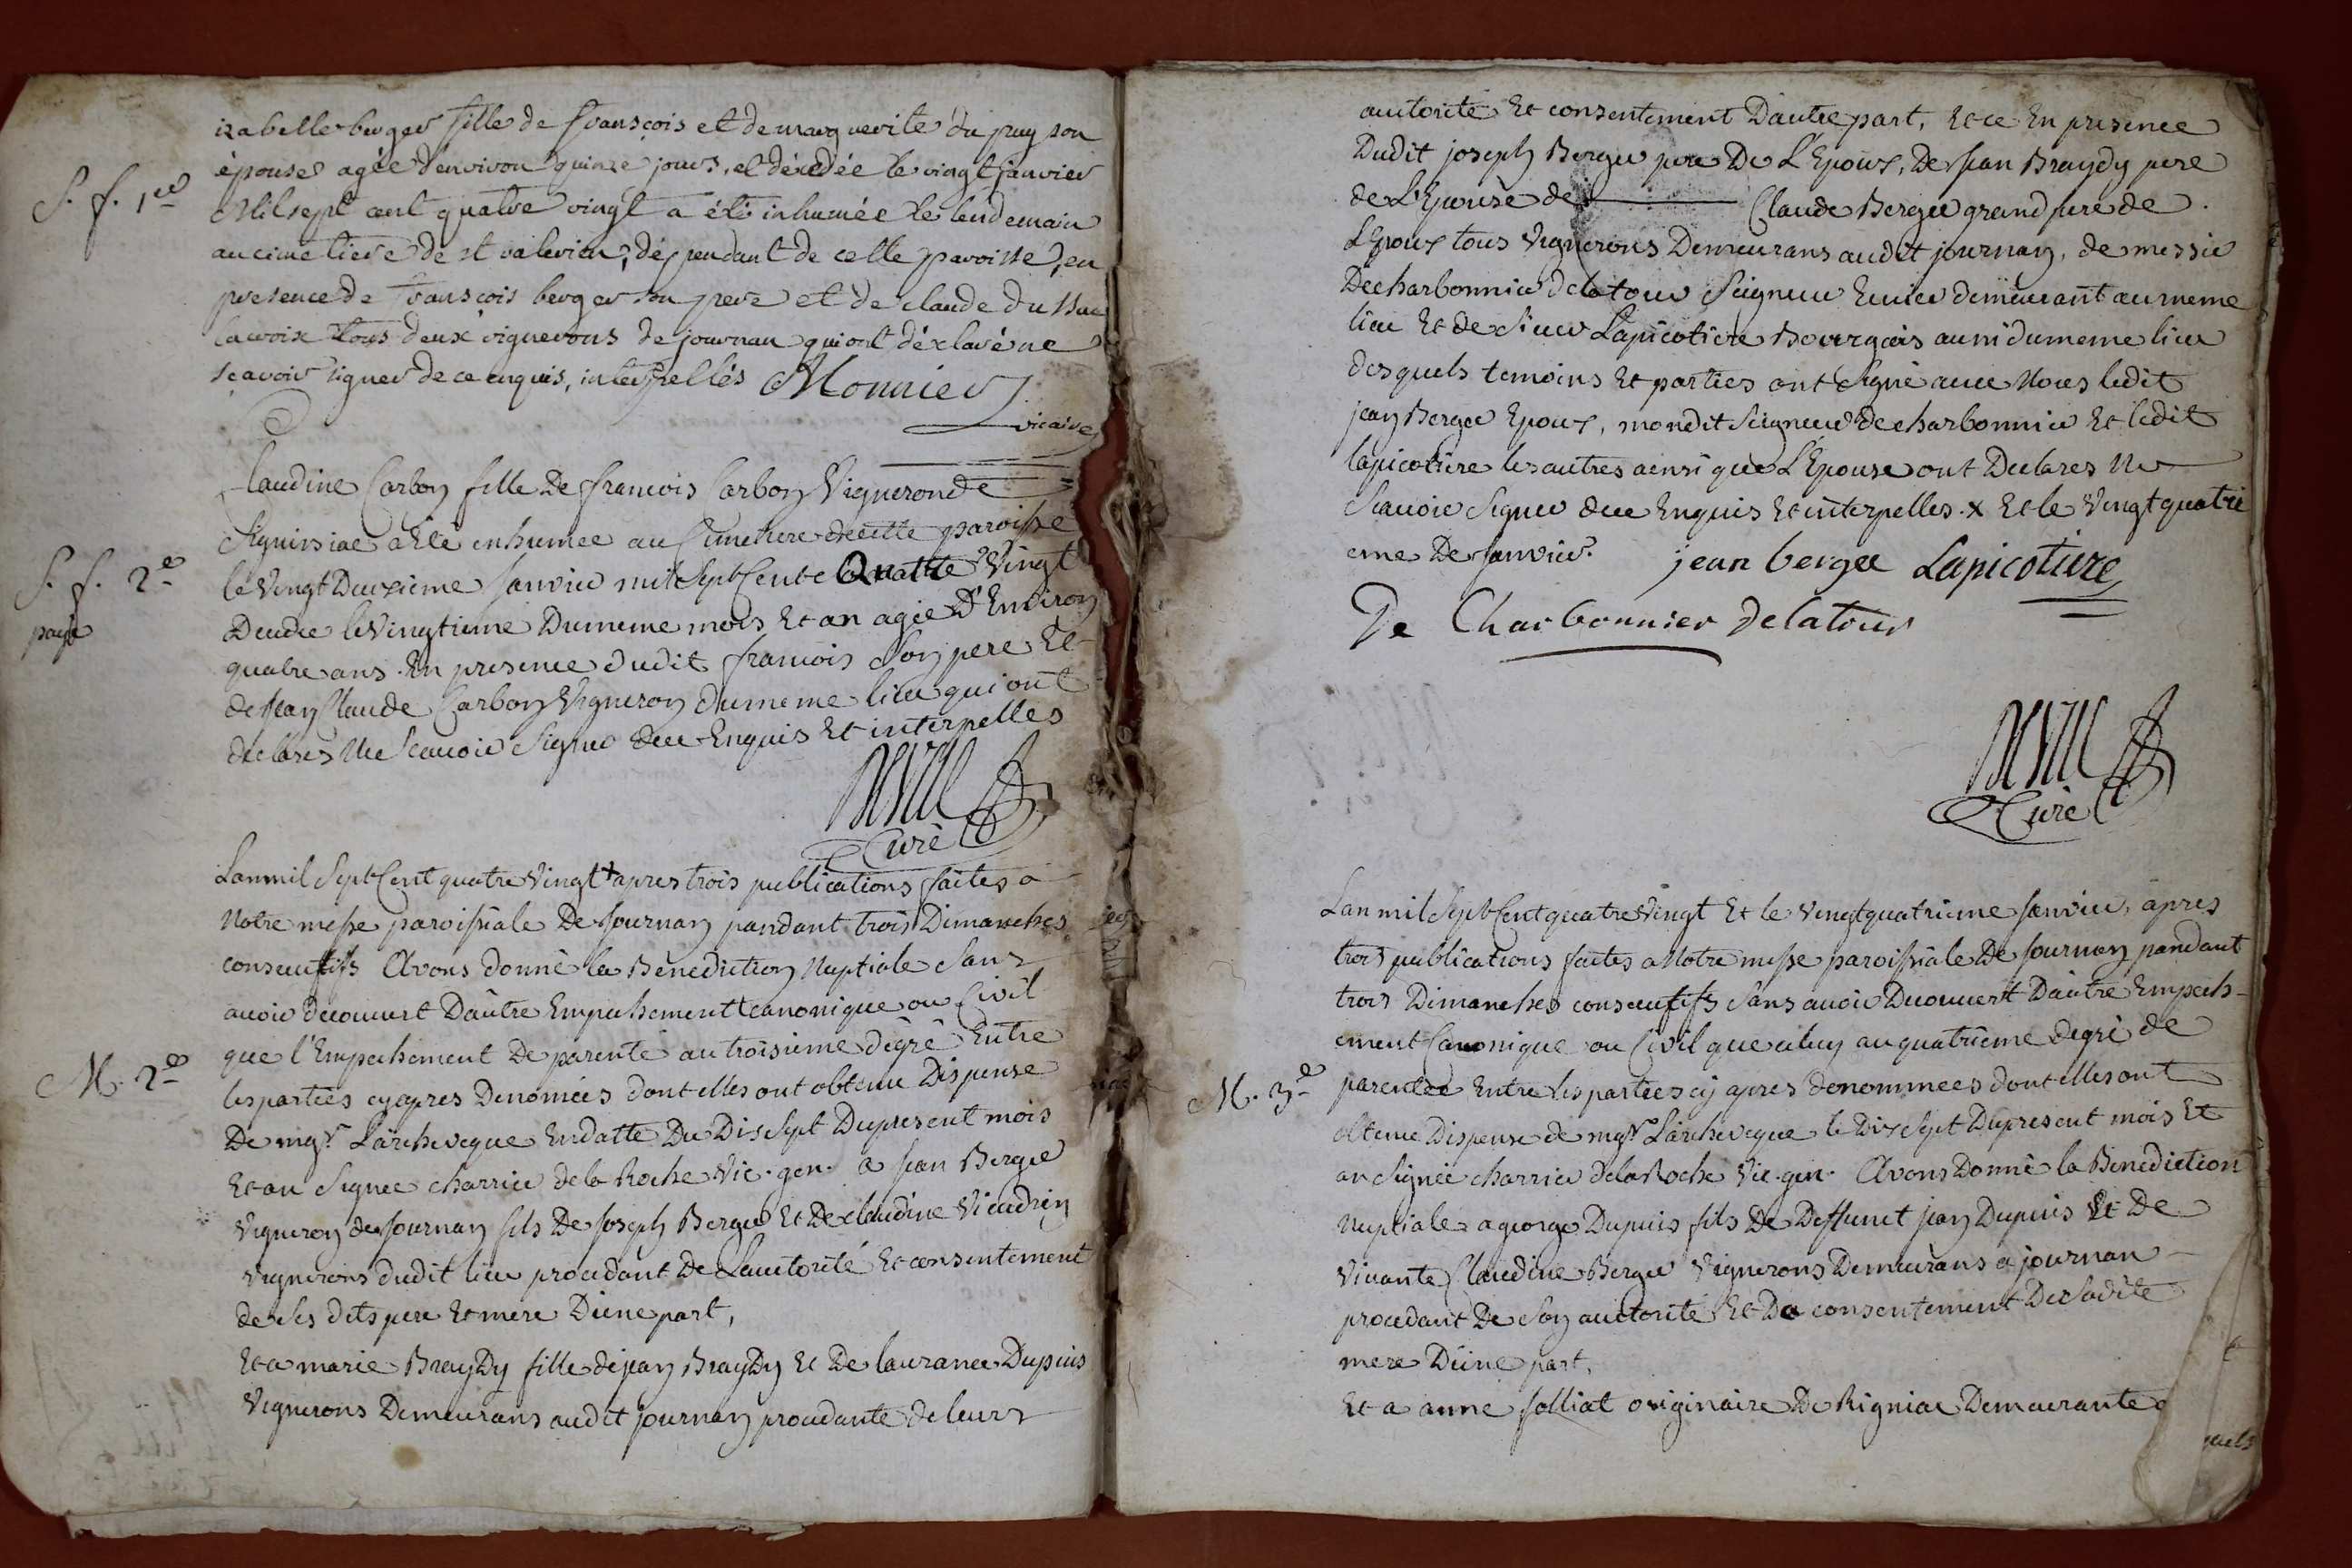 izabelle berger fille de franscois et de marguerite du puy son
épouse agée d'environ quinze jours, et décédée le vingt janvier
S. f. 1re
Mil sept cent quatre vingt a été inhumée le lendemain
au cimetiere de st valerien, dépendant de cette paroisse, en
presence de franscois berger son pere et de claude du
lacroix tous deux vignerons de journan qui ont déclaré ne
scavoir signer de ce enquis, interpellés Monnier
vicaire
Claudine Carbon fille De francois Carbon Vigneron de
a Eté inhumee au Cimetiere de cette paroisse
S. f. 2e
le vingt Deuxieme Janvier mil Sept Cent Quatre Vingt
Decedee le vingtieme Du meme mois Et an agée D'Environ
quatre ans. En presence dudit francois Son pere Et
de Jean Claude Carbon Vigneron du meme lieu qui ont
declares Ne Scauoir Signer de ce Enquis Et interpelles
Curé
Lan mil Sept Cent quatre Vingt + apres trois publications faites a
Notre messe paroissiale De Journan pandant trois Dimanches
consecutifs Avons donné la Bénediction Nuptiale Sans
auoir decouuert Dautre Empechement canonique ou Civil
que l'Empechement De parenté au troisieme dégré Entre
M. 2e
les parties cy apres Denomées dont elles ont obtenu Dispense
De mgr. Larcheveque En datte Du Dis Sept Du present mois
Et an Signee charrier de la Roche Vic. gen. a Jean Berger
Vigneron de Journan fils De Joseph Berger Et De claudine
Vignerons dudit lieu procedant De Lautorité Et consentement
de Ses dits pere Et mere D'une part,
Et a marie Braydy fille de jean Braydy Et De laurance Dupuis
Vignerons Demeurans audit journan procedante de leurs
autorité Et consentement Dautre part, Et ce En presence
Dudit joseph Berger pere De L'Epoux, De Jean Braydy pere
de L'Epouse de Claude Berger grand pere de
L'Epoux tous Vignerons Demeurans audit journan, de messire
De charbonnier de la tour Seigneur Ecuier demeurant au meme
lieu Et de Sieur Lapicotiere Bourgeois aussi du meme lieu
desquels temoins Et parties ont Signé avec Nous ledit
jean Berger Epoux, mondit Seigneur de charbonnier Et ledit
lapicotiere les autres ainsi que L'Epouse ont Declares Ne
Scauoir Signer de ce Enquis Et interpelles. x Et le Vingt quatri
eme De Janvier. jean berger Lapicotiere
De Charbonnier Delatour
Curé
Lan mil Sept Cent quatre Vingt Et le vingt quatrieme Janvier, apres
trois publications faites a Notre messe paroissiale De Journan pandant
trois Dimanches consecutifs Sans auoir Decouuert Dautre Empech-
ement Canonique ou Civil que celuy au quatrieme degré de
M. 3e
parentée Entre les parties cy apres denommees dont elles ont
obtenu Dispense de mgr. Larcheveque le Dix Sept Du present mois Et
an Signée charrier de la Roche Vic. gen. Avons Donné la Benediction
Nuptiale a george Dupuis fils De Deffunct jean Dupuis Et De
Vivante Claudine Berger Vignerons Demeurans a journan
procedant De Son autorité Et De consentement De Sadite
mere D'une part,
Et a anne folliat originaire De Rigniac Demeurante